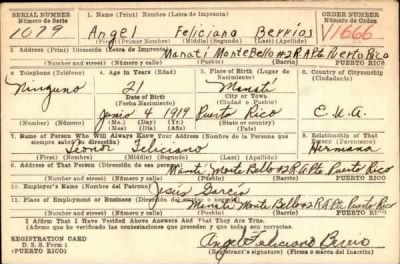 SERIAL NUMBER
Número de Serie
1. Name (Print) Nombre (Letra de Imprenta)
ORDER NUMBER
Número de Orden
1079
Angel Feliciano Berrios
V1666
(First) Primer Nombre (Middle) Segundo (Last) Apellido
2. Address (Print) Dirección (Letra de Imprenta)
Manatí Monte Bello #2 R A Pto. Puerto Rico
(Number and street) (Número y calle) (Town) (Pueblo) (Municipality) (Municipio) PUERTO RICO
4. Telephone (Teléfono)
Ninguno
4. Age In Years (Edad)
21
Date of Birth
Fecha Nacimiento
Junio 4 1919
(Mo.) (Day) (Yr.)
(Mes) (Día) (Año)
5. Place of Birth (Lugar de Nacimiento)
Manatí
City or Town
(Ciudad o Pueblo)
Puerto Rico
(State or country)
(Estado o país)
6. Country of Citizenship
(Ciudadanía)
E.U.A.
7. Name of Person Who Will Always Know Your Address (Nombre de la Persona que siempre sabrá su dirección)
Leonor Feliciano
(First) (Middle) (Last)
8. Relationship of That Person (Parentesco)
Hermana
9. Address of That Person (Dirección de esa persona)
Manatí Monte Bello #2 R A Pto. Puerto Rico
(Number and street) (Número y calle) (Town) (Pueblo) (Municipality) (Municipio) PUERTO RICO
10. Employer's Name (Nombre del Patrono)
Jesús García
11. Place of Employment or Business (Dirección del empleo o negocio)
Manatí Monte Bello #2 R A Pto. Puerto Rico
(Number and street) (Número y calle) (Town) (Pueblo) (Municipality) (Municipio) PUERTO RICO
I Affirm That I Have Verified Above Answers And That They Are True.
Afirmo que he verificado las contestaciones que preceden y que todas son correctas.
REGISTRATION CARD
D. S. S. Form 1
Angel Feliciano Berrio
(Registrant's signature) (Firma o marca del Inscrito)